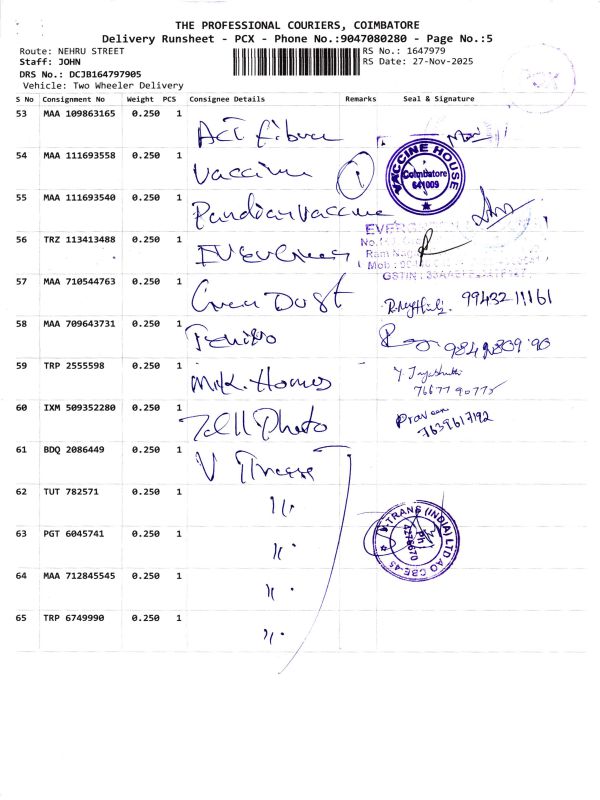 THE PROFESSIONAL COURIERS, COIMBATORE
Delivery Runsheet - PCX - Phone No.:9047080280 - Page No.:5
Route: NEHRU STREET
RS No.: 1647979
Staff: JOHN
RS Date: 27-Nov-2025
DRS No.: DCJB164797905
Vehicle: Two Wheeler Delivery
S No Consignment No Weight PCS Consignee Details Remarks Seal & Signature
53 MAA 109863165 0.250 1 ACT fibre
54 MAA 111693558 0.250 1 Vaccine 1
VACCINE HOUSE
Coimbatore
641009
55 MAA 111693540 0.250 1 Pandian Vaccine
56 TRZ 113413488 0.250 1 Evergreen
EVERG
No.
Ram Nag
Mob :
GSTIN : 33AA
57 MAA 710544763 0.250 1 Dust 9943211161
58 MAA 709643731 0.250 1
59 TRP 2555598 0.250 1 M.K. Homes
7667790775
60 IXM 509352280 0.250 1 Zell Photo Praveen
7639617192
61 BDQ 2086449 0.250 1 V
62 TUT 782571 0.250 1 "
63 PGT 6045741 0.250 1 "
V-TRANS (INDIA) LTD AO CBE-45
Ph
4278670
64 MAA 712845545 0.250 1 "
65 TRP 6749990 0.250 1 "